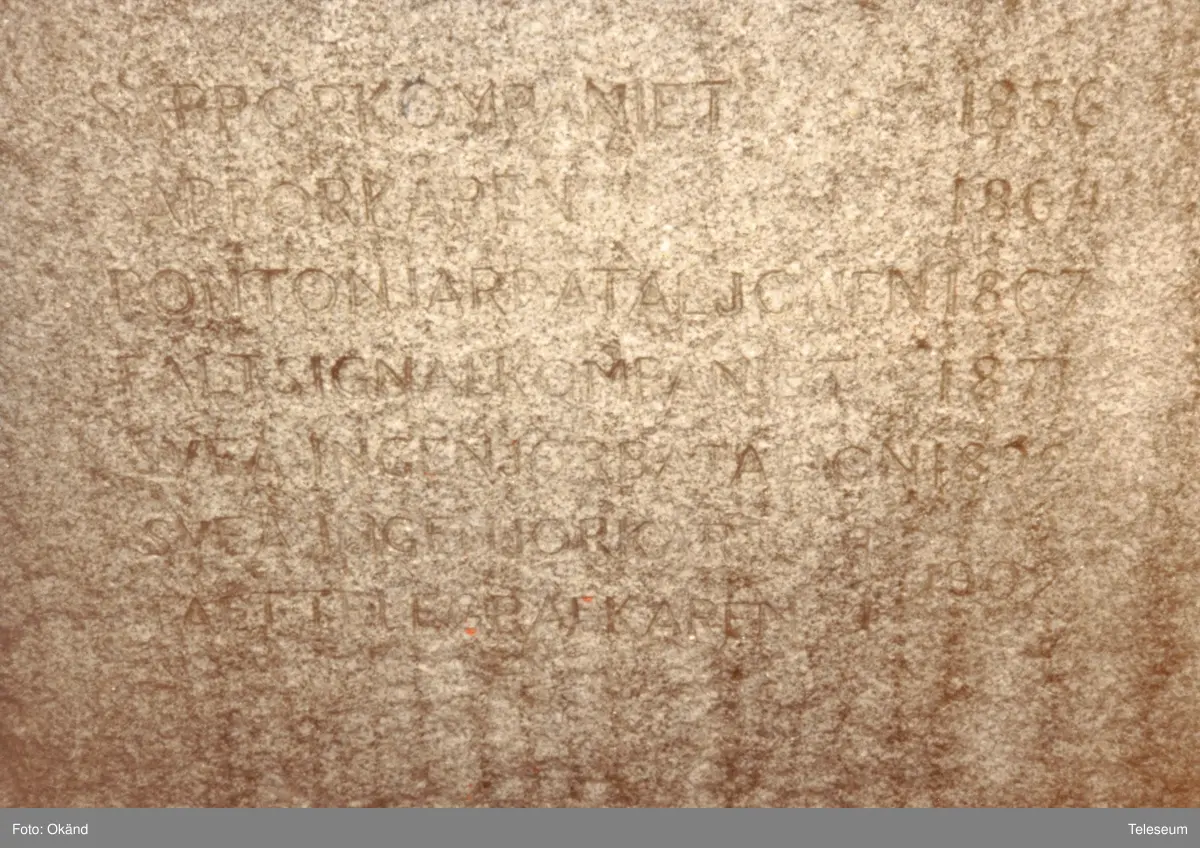 SAPPÖRKOMPANIET 1856
SAPPÖRKÅREN 1864
PONTONJÄRBATALJONEN 1867
FÄLTSIGNALKOMPANIET 1871
SVEA INGENJÖRBATALJON
SVEA INGENJÖRK
FÄLTTELEGRAFKÅREN 1902
Foto: Okänd
Teleseum